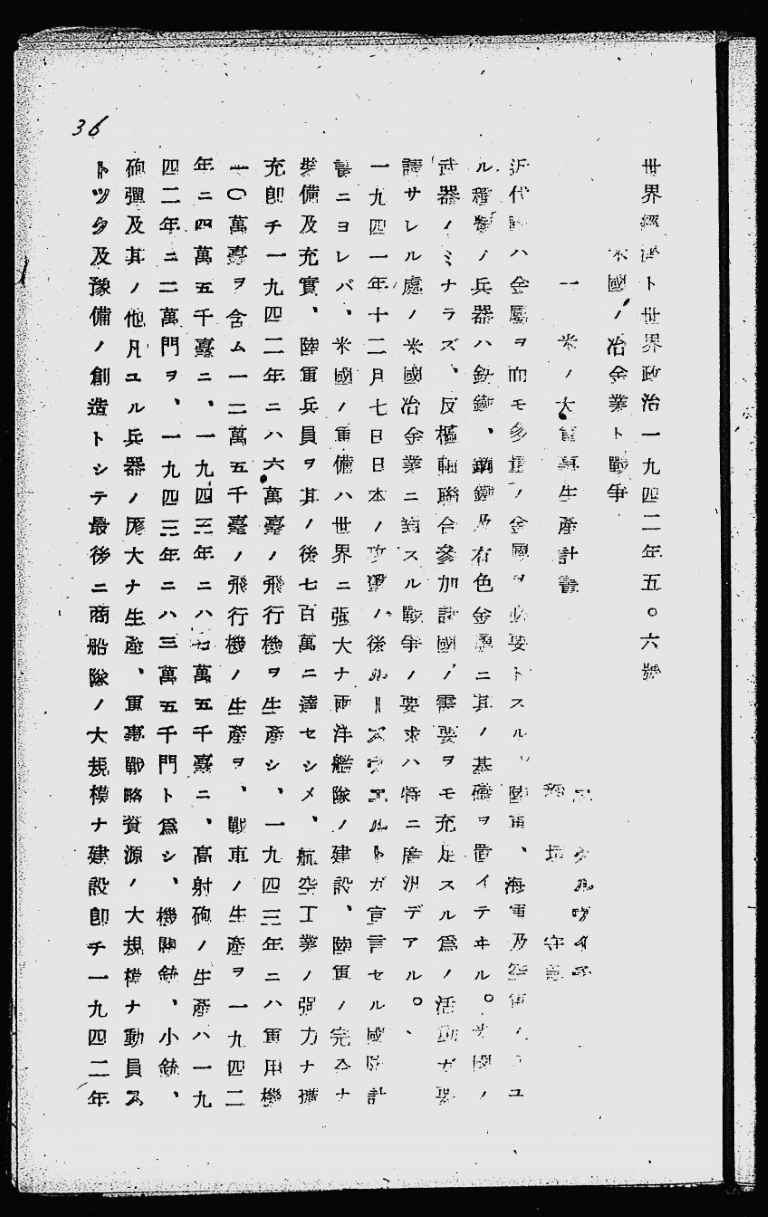 36
世界經濟ト世界政治一九四二年五。六號
米國ノ冶金業ト戰爭
一 米ノ大軍事生産計畫
守
近代戰ハ金屬ヲ而モ多量ノ金屬ヲ必要トスル。陸軍、海軍及空軍ノ ユ
ル種類ノ兵器ハ銑鐵、鋼鐵及有色金屬ニ其ノ基礎ヲ置イテヰル。米國ノ
武器ノミナラズ、反樞軸聯合參加諸國ノ需要ヲモ充足スル爲ノ活動ガ要
請サレル處ノ米國冶金業ニ對スル戰爭ノ要求ハ特ニ厖汎デアル。
一九四一年十二月七日日本ノ攻擊ノ後ルーズヴエルトガ宣言セル國防計
畫ニヨレバ、米國ノ軍備ハ世界ニ强大ナ兩洋艦隊ノ建設、陸軍ノ完全ナ
裝備及充實、陸軍兵員ヲ其ノ後七百萬ニ達セシメ、航空工業ノ强力ナ擴
充卽チ一九四二年ニハ六萬臺ノ飛行機ヲ生産シ、一九四三年ニハ軍用機
一〇萬臺ヲ含ム一二萬五千臺ノ飛行機ノ生産ヲ、戰車ノ生産ヲ一九四二
年ニ四萬五千臺ニ、一九四三年ニハ七萬五千臺ニ、高射砲ノ生産ハ一九
四二年ニ二萬門ヲ、一九四三年ニハ三萬五千門ト爲シ、機關銃、小銃、
砲彈及其ノ他凡ユル兵器ノ厖大ナ生産、軍事戰略資源ノ大規模ナ動員ス
トツク及豫備ノ創造トシテ最後ニ商船隊ノ大規模ナ建設卽チ一九四二年